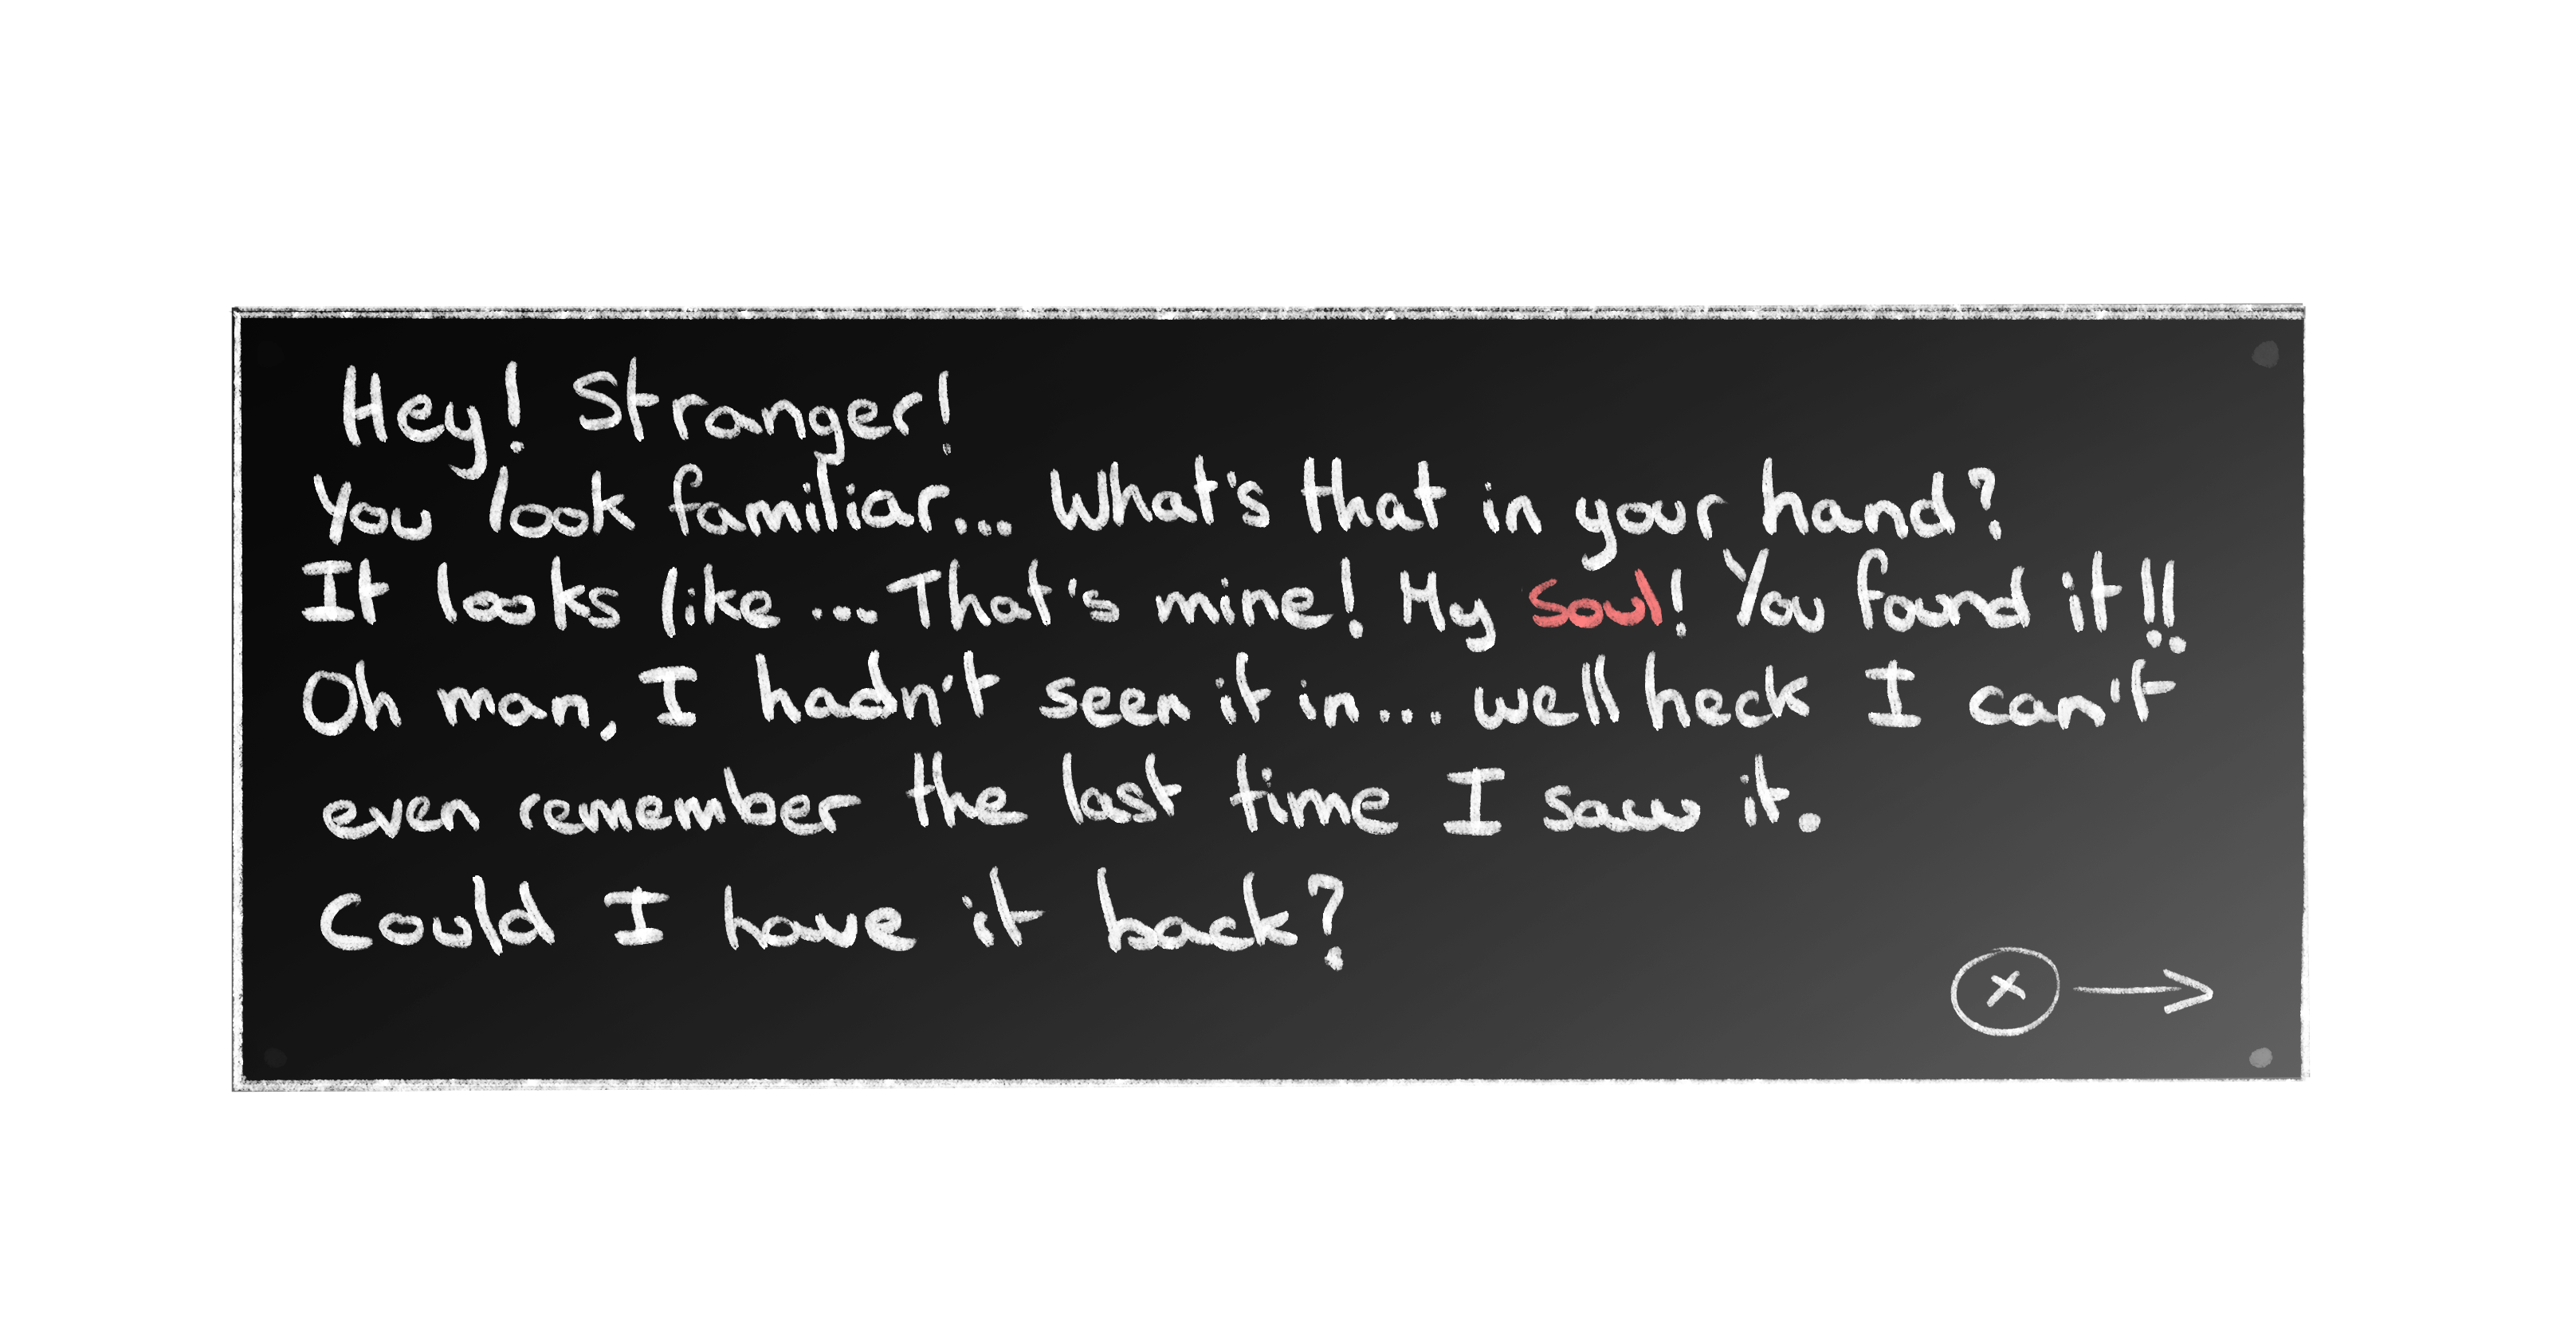 Hey! Stranger!
You look familiar... What's that in your hand?
It looks like ... That's mine! My Soul! You found it!!
Oh man, I hadn't seen it in... well heck I can't
even remember the last time I saw it.
Could I have it back?
X →